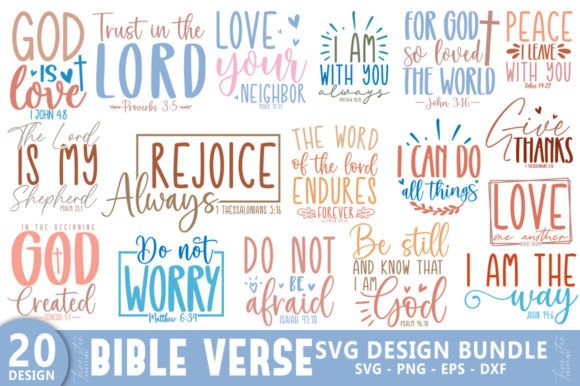 GOD
IS
love
1 JOHN 4:8
Trust in the
LORD
Proverbs 3:5
LOVE
your
NEIGHBOR
MARK 12:31
I AM
WITH YOU
always
MATTHEW 28:20
FOR GOD
so loved
THE WORLD
John 3:16
PEACE
I LEAVE
WITH YOU
John 14:27
The Lord
IS MY
Shepherd
PSALM 23:1
REJOICE
Always
1 THESSALONIANS 5:16
THE WORD
of the lord
ENDURES
FOREVER
I CAN DO
all things
Give
THANKS
1 THESSALONIANS 5:18
LOVE
one another
IN THE BEGINNING
GOD
Created
GENESIS 1:1
Do not
WORRY
Matthew 6:34
DO NOT
BE
afraid
ISAIAH 41:10
Be still
AND KNOW THAT
I AM
God
PSALM 46:10
I AM THE
way
JOHN 14:6
20
DESIGN
BIBLE VERSE
SVG DESIGN BUNDLE
SVG - PNG - EPS - DXF